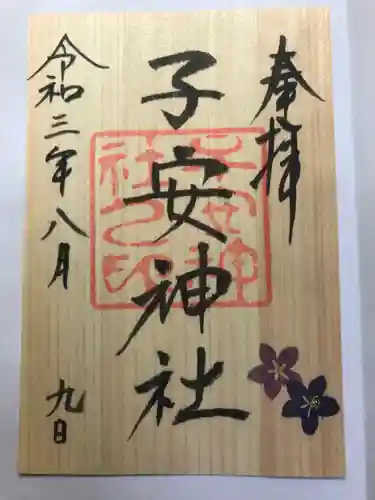 奉拝
子安神社
子安神社之印
令和三年八月九日